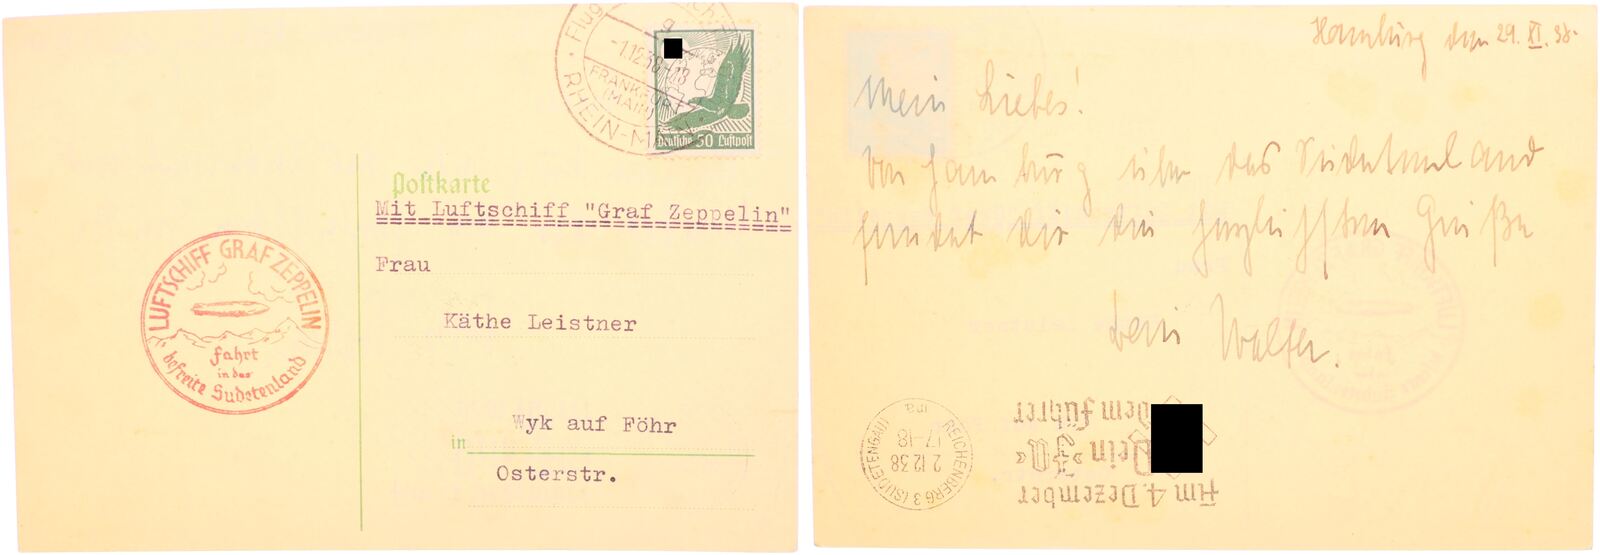 Flug
-1.12.38-18
FRANKFURT
(MAIN)
RHEIN-MAIN
Deutsche 50 Luftpost
Postkarte
Mit Luftschiff "Graf Zeppelin"
Frau
Käthe Leistner
Wyk auf Föhr
in
Osterstr.
LUFTSCHIFF GRAF ZEPPELIN
Fahrt
in das
befreite Sudetenland
Hamburg den 29. XI. 38.
Mein Liebes!
Von Hamburg über das Sudetenland
sendet dir die herzlichsten Grüße
Dein Walter.
REICHENBERG 3 (SUDETENGAU)
2.12.38
17-18
ma
Am 4. Dezember
Dein »JA«
dem Führer